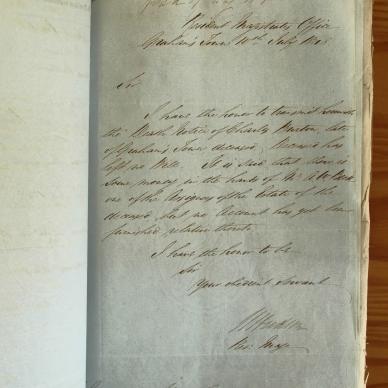 Resident Magistrates Office
Graham's Town 10th July
Sir
I have the honor to transmit herewith
the Death Notice of Charles Burton, late
of Graham's Town deceased, Deceased has
left no Will. It is said that there is
some money in the hands of Mr
one of the Assignees of the Estate of the
deceased, but no account has yet been
furnished relative thereto.
I have the honor to be
Sir
Your obedient Servant
Res: Mag